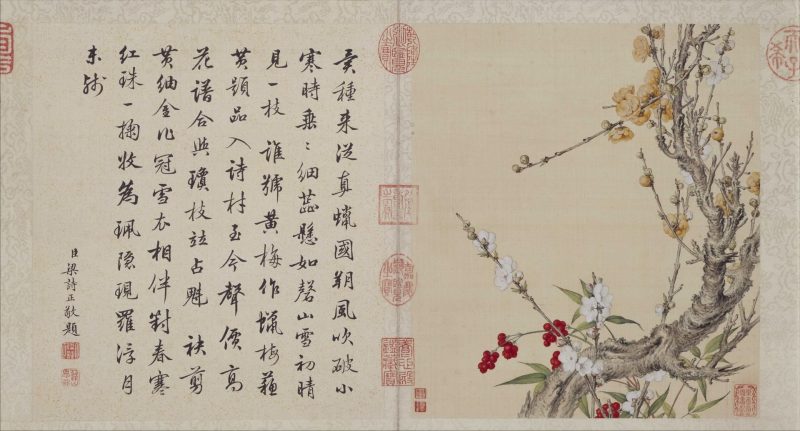 種来從真蠟國朔風吹破小
寒時垂〻細蕊懸如磬山雪初晴
見一枝 誰號黃梅作蠟梅蘓
黃題品入詩材至今聲價高
花譜合與瓊枝竝占魁 袂剪
黃紬金作冠雪衣相伴對春寒
紅珠一掬收為珮隐現羅浮月
未殘
臣梁詩正敬題